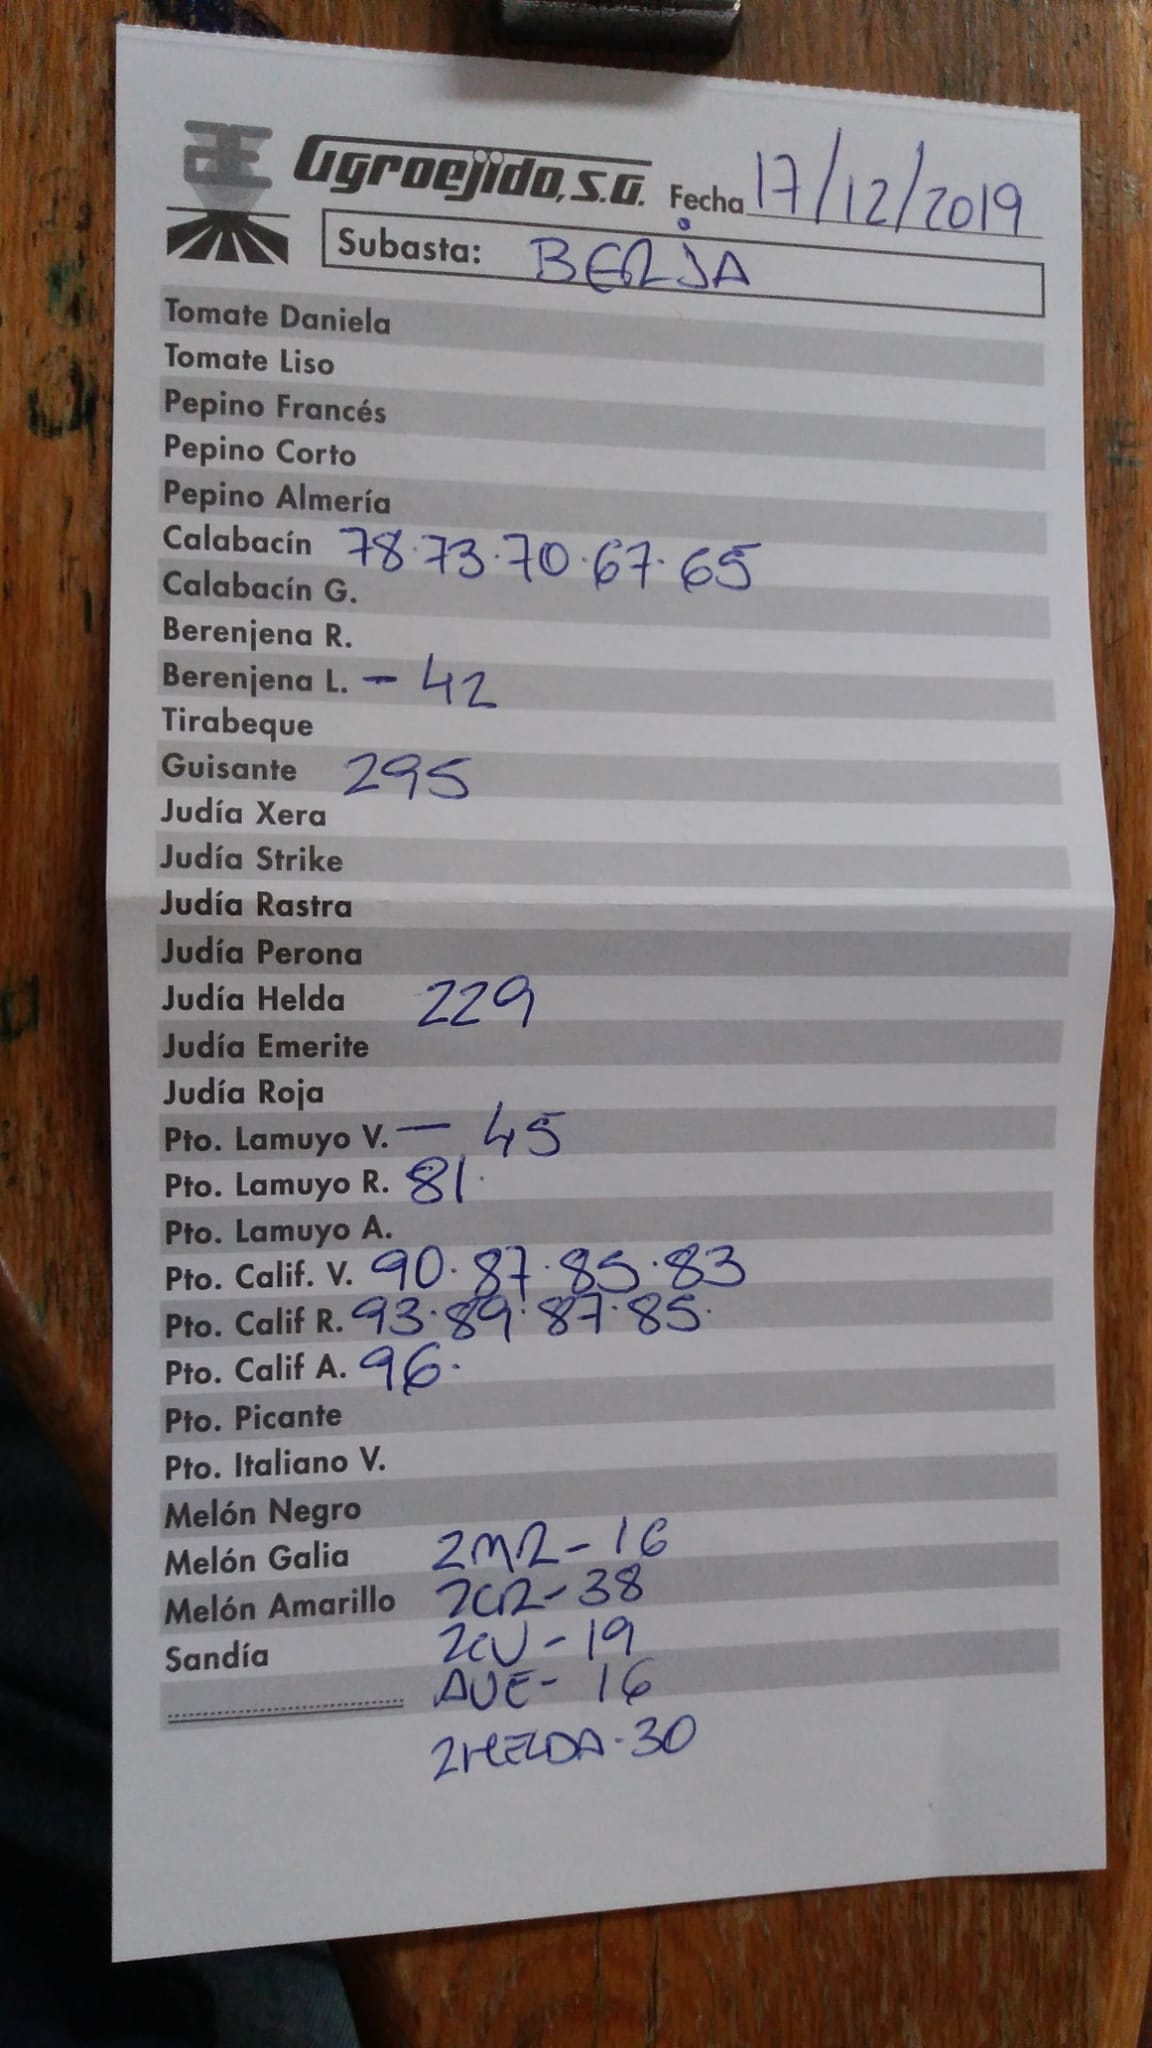 Agroejido, S.A. Fecha 17/12/2019
Subasta: BERJA
Tomate Daniela
Tomate Liso
Pepino Francés
Pepino Corto
Pepino Almería
Calabacín 78.73.70.67.65
Calabacín G.
Berenjena R.
Berenjena L. - 42
Tirabeque
Guisante 295
Judía Xera
Judía Strike
Judía Rastra
Judía Perona
Judía Helda 229
Judía Emerite
Judía Roja
Pto. Lamuyo V. — 45
Pto. Lamuyo R. 81.
Pto. Lamuyo A.
Pto. Calif. V. 90.87.85.83
Pto. Calif R. 93.89.87.85.
Pto. Calif A. 96.
Pto. Picante
Pto. Italiano V.
Melón Negro
Melón Galia 2MR-16
Melón Amarillo 2CR-38
Sandía 2CV-19
AVE-16
2HELDA-30